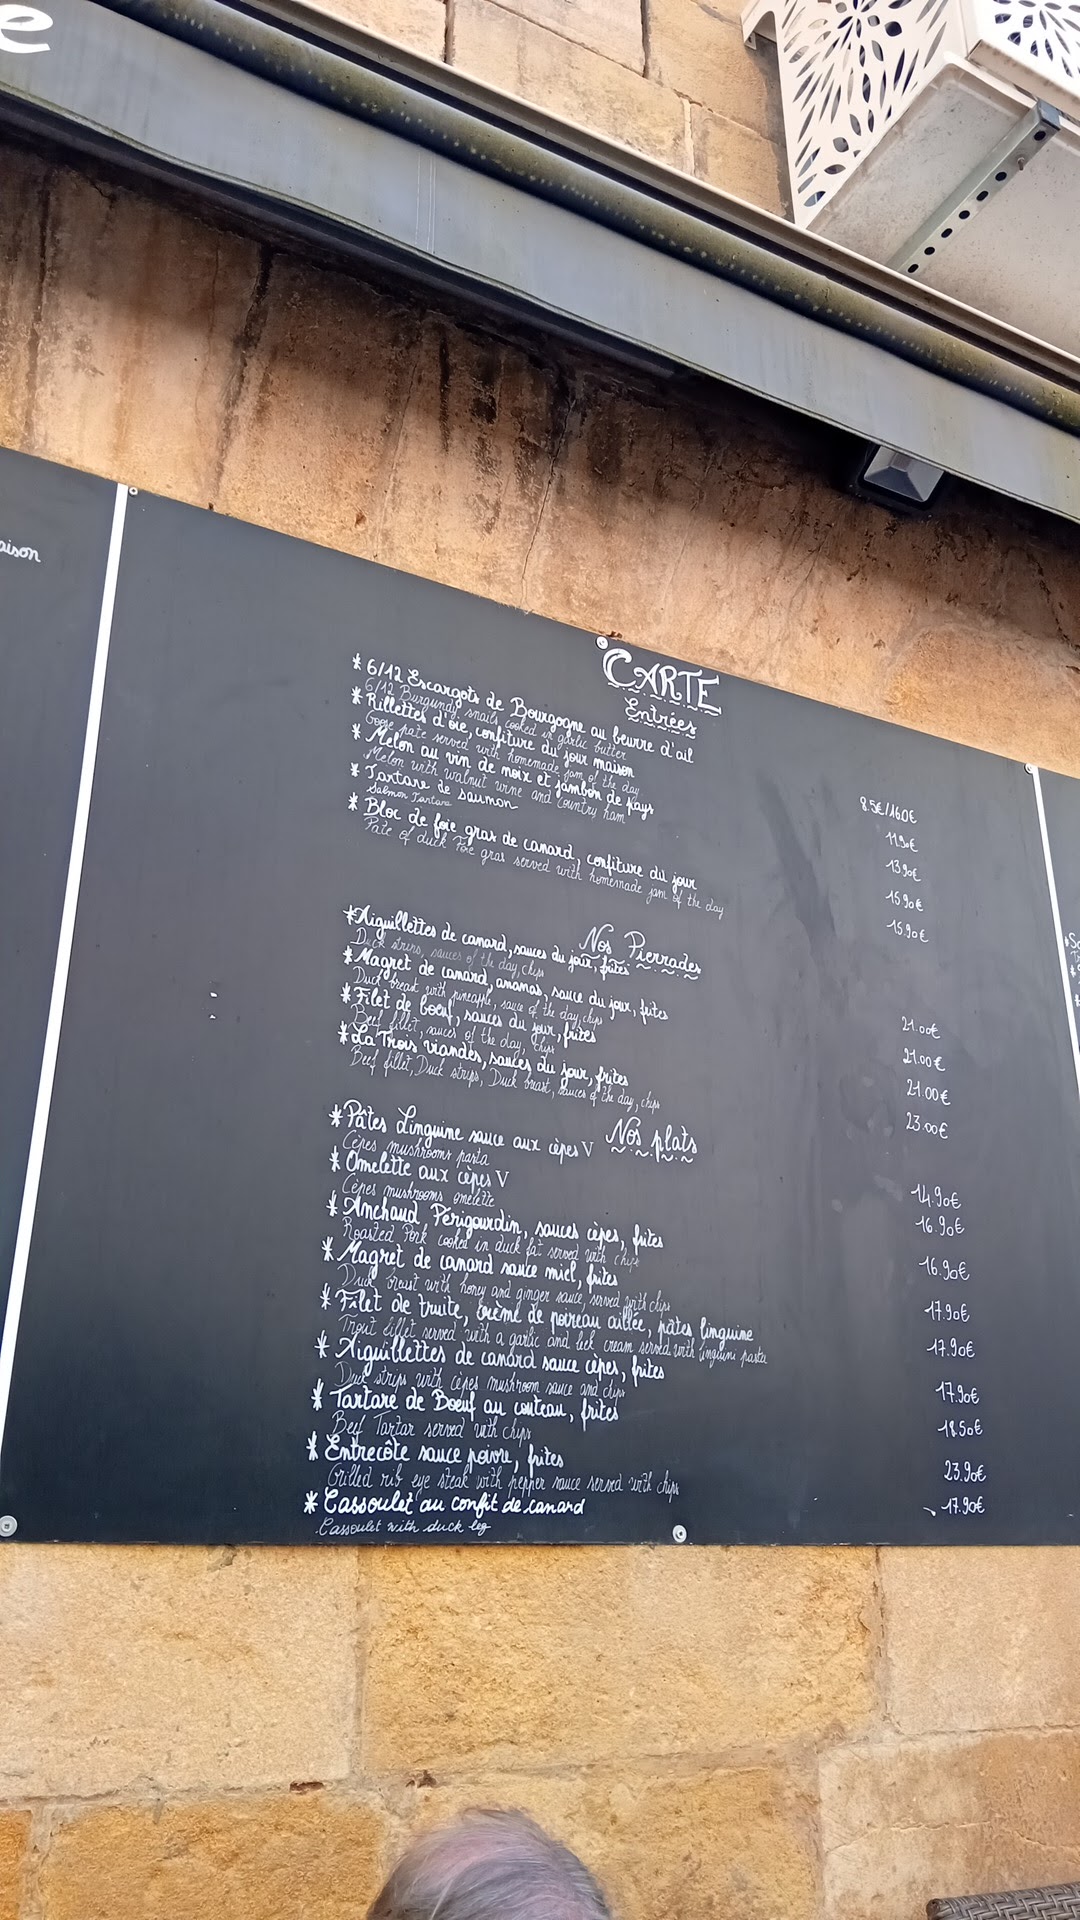 e
aison
CARTE
Entrées
* 6/12 Escargots de Bourgogne au beurre d'ail 8.5€/16.0€
6/12 Burgundy snails cooked in garlic butter
* Rillettes d'oie, confiture du jour maison 11.90€
Goose pate served with homemade jam of the day
* Melon au vin de noix et jambon de pays 13.90€
Melon with walnut wine and country ham
* Tartare de saumon 15.90€
Salmon Tartare
* Bloc de foie gras de canard, confiture du jour 15.90€
Pate of duck Foie gras served with homemade jam of the day
Nos Pierrades
* Aiguillettes de canard, sauces du jour, frites 21.00€
Duck strips, sauces of the day, chips
* Magret de canard, ananas, sauce du jour, frites 21.00€
Duck breast with pineapple, sauce of the day, chips
* Filet de boeuf, sauces du jour, frites 21.00€
Beef fillet, sauces of the day, chips
* La Trois viandes, sauces du jour, frites 23.00€
Beef fillet, Duck strips, Duck breast, sauces of the day, chips
Nos plats
* Pâtes Linguine sauce aux cèpes V 14.90€
Cèpes mushrooms pasta
* Omelette aux cèpes V 16.90€
Cèpes mushrooms omelette
* Anchaud Périgourdin, sauces cèpes, frites 16.90€
Roasted Pork cooked in duck fat served with chips
* Magret de canard sauce miel, frites 17.90€
Duck breast with honey and ginger sauce, served with chips
* Filet de truite, crème de poireau aillée, pâtes linguine 17.90€
Trout fillet served with a garlic and leek cream served with linguini pasta
* Aiguillettes de canard sauce cèpes, frites 17.90€
Duck strips with cèpes mushroom sauce and chips
* Tartare de Boeuf au couteau, frites 18.50€
Beef Tartar served with chips
* Entrecôte sauce poivre, frites 23.90€
Grilled rib eye steak with pepper sauce served with chips
* Cassoulet au confit de canard 17.90€
Cassoulet with duck leg